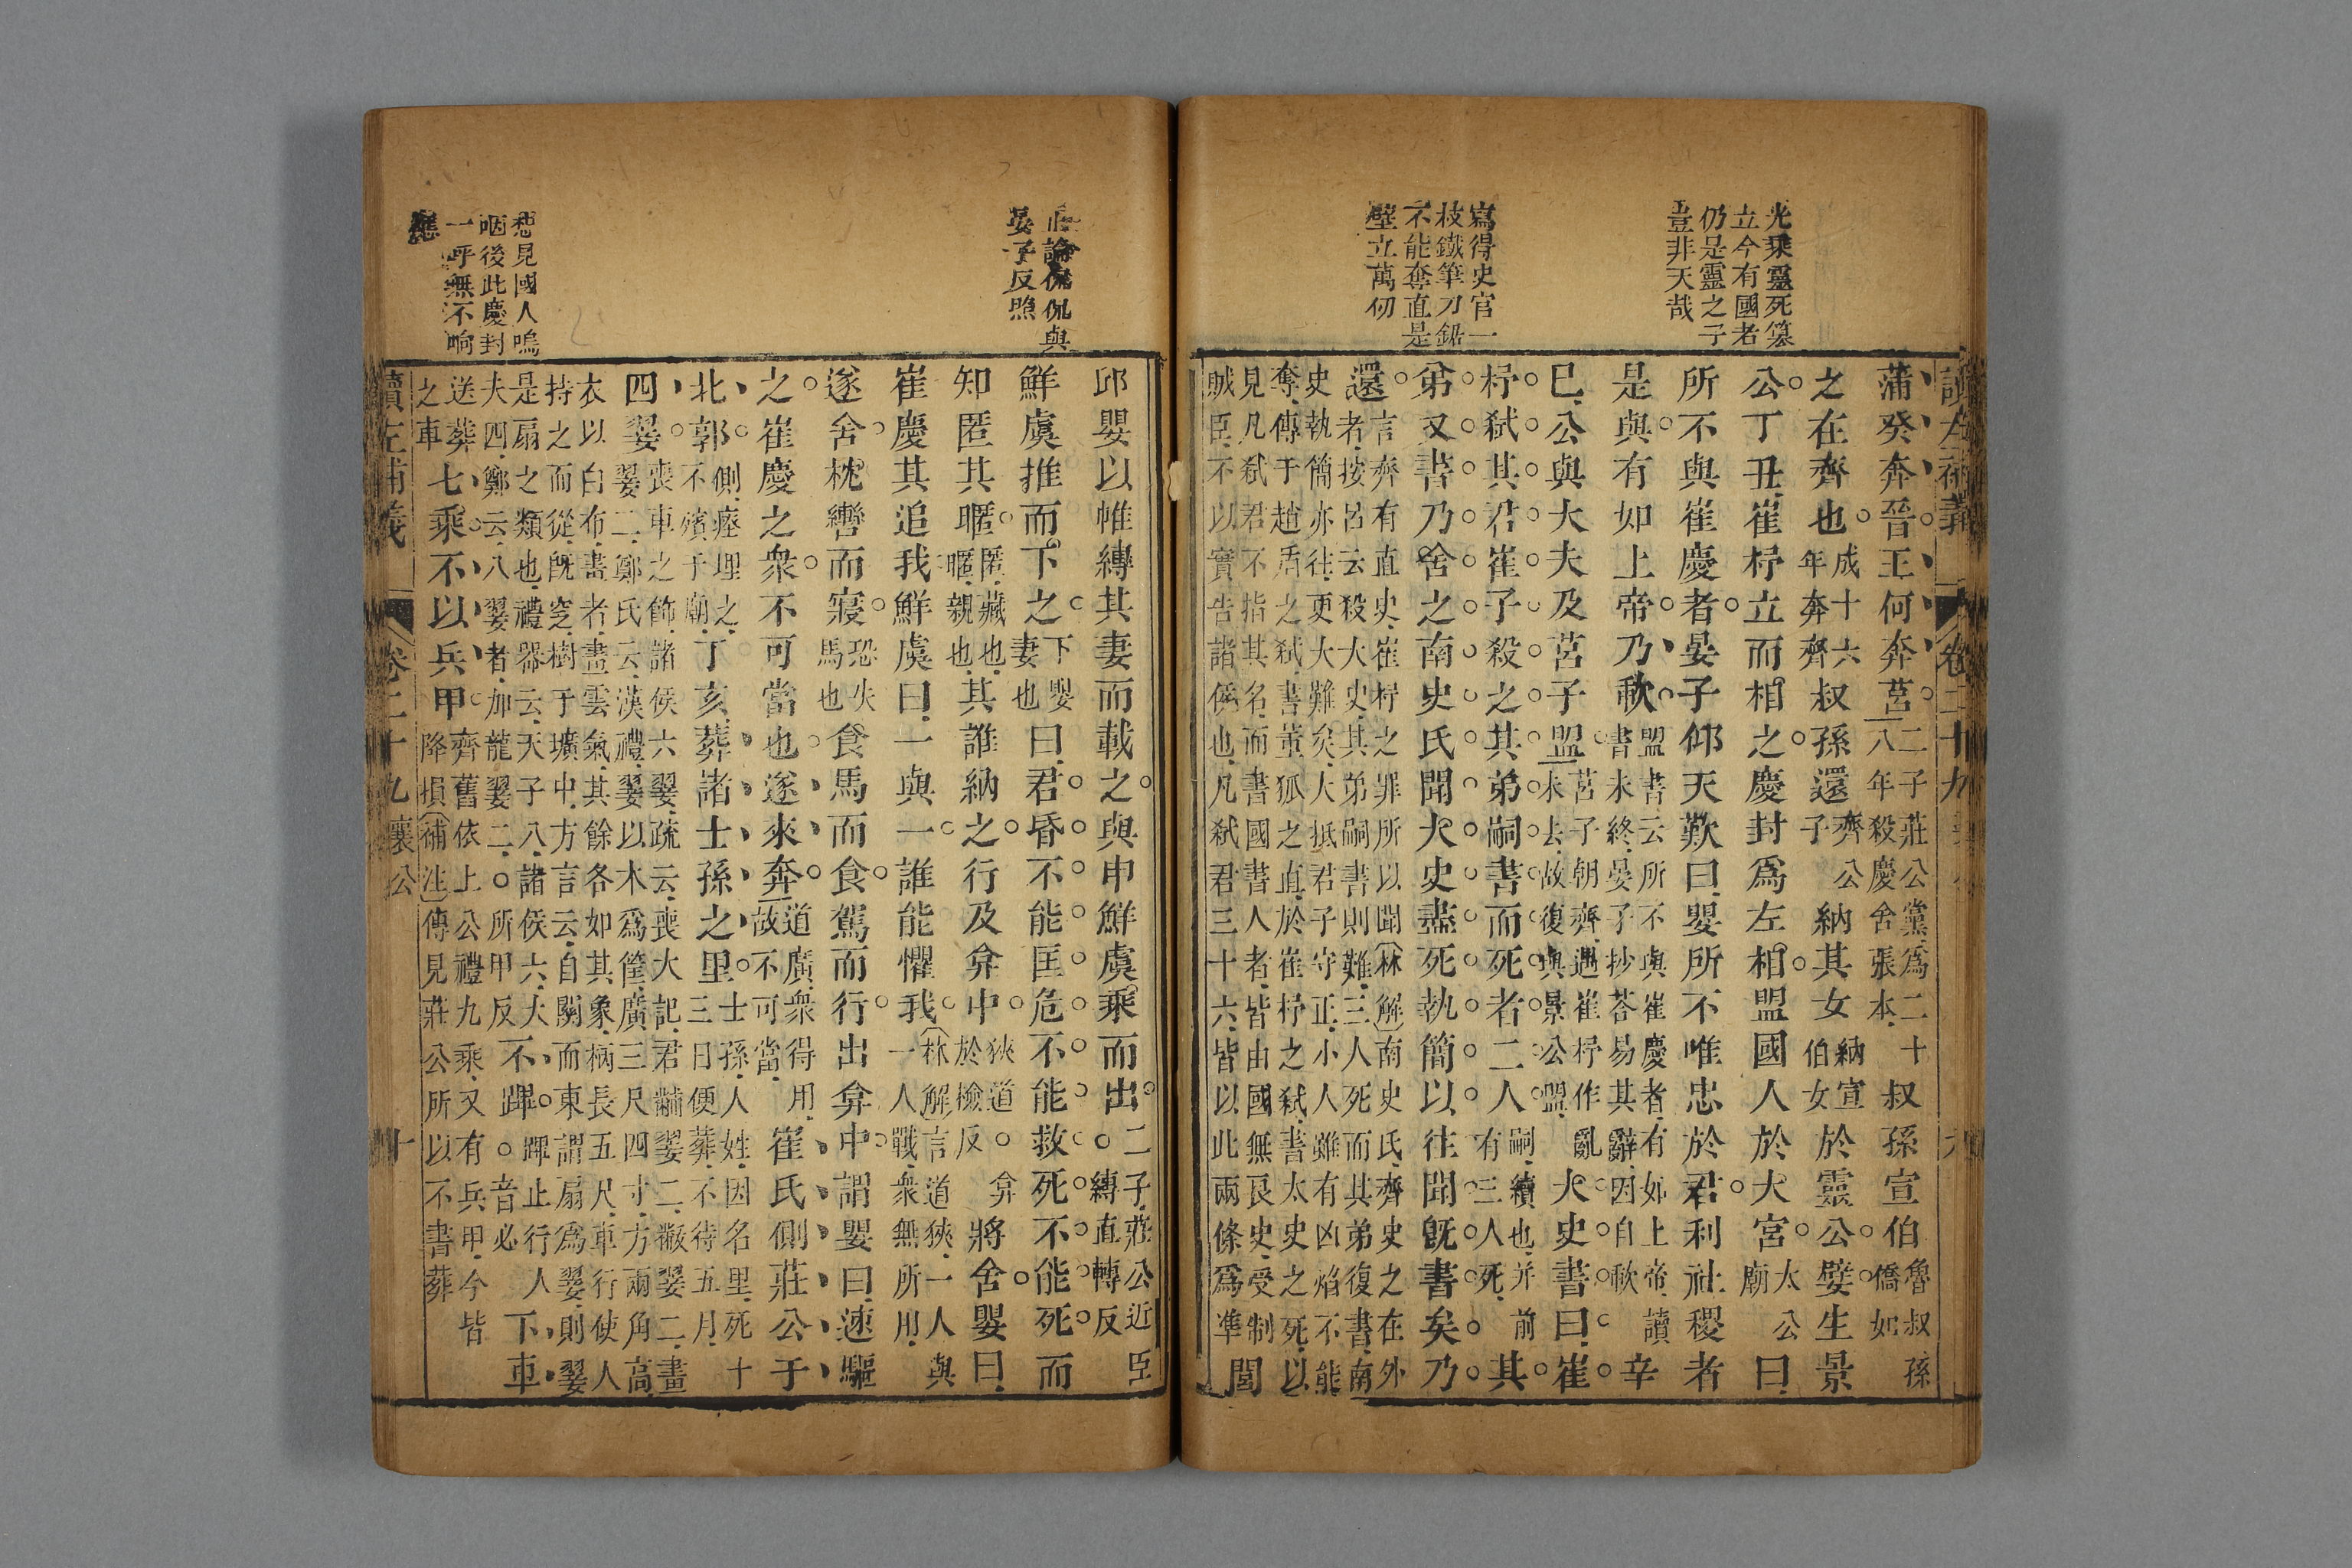 讀左補義 卷二十九
光乘靈死篡
立今有國者
仍是靈之子
豈非天哉
寫得史官一
枝鐵筆刀鋸
不能奪直是
壁立萬仞
蒲癸奔晉王何奔莒二子莊公黨爲二十八年殺慶舍張本叔孫宣伯魯叔孫僑如
之在齊也成十六年奔齊叔孫還齊公子納其女納宣伯女於靈公嬖生景
公丁丑崔杼立而相之慶封爲左相盟國人於大宮太公廟曰
所不與崔慶者晏子仰天歎曰嬰所不唯忠於君利社稷者
是與有如上帝乃歃盟書云所不與崔慶者有如上帝讀書未終晏子抄荅易其辭因自歃辛
巳公與大夫及莒子盟莒子朝齊遇崔杼作亂未去故復與景公盟大史書曰崔
杼弒其君崔子殺之其弟嗣書而死者二人嗣續也并前有三人死其
弟又書乃舍之南史氏聞大史盡死執簡以往聞旣書矣乃
還言齊有直史崔杼之罪所以聞(林解)南史氏齊史之在外者按呂云殺大史其弟嗣書則難三人死而其弟復書南
史執簡亦往更大難矣大抵君子守正小人雖有凶焰不能奪傳于趙盾之弒書董狐之直於崔杼之弒書太史之死以
見凡弒君不指其名而書國書人者皆由國無良史受制賊臣不以實告諸侯也凡弒君三十六皆以此兩條爲凖閭
正論侃侃與
晏子反照
想見國人嗚
咽後此慶封
一呼無不响
應
邱嬰以帷縳其妻而載之與申鮮虞乘而出○二子莊公近臣縳直轉反
鮮虞推而下之下嬰妻也曰君昏不能匡危不能救死不能死而
知匿其暱匿藏也暱親也其誰納之行及弇中狹道○弇於檢反將舍嬰曰
崔慶其追我鮮虞曰一與一誰能懼我(林解)言道狹一人與一人戰衆無所用
遂舍枕轡而寢恐失馬也食馬而食駕而行出弇中謂嬰曰速驅
之崔慶之衆不可當也遂來奔道廣衆得用故不可當崔氏側莊公于
北郭側瘞埋之不殯于廟丁亥葬諸士孫之里士孫人姓因名里死十三日便葬不待五月
四翣喪車之飾諸侯六翣疏云喪大記君黼翣二黻翣二畫翣二鄭氏云漢禮翣以木爲筐廣三尺四寸方兩角高
衣以白布畫者畫雲氣其餘各如其象柄長五尺車行使人持之而從旣窆樹于壙中方言云自關而東謂扇爲翣則翣
是扇之類也禮器云天子八諸侯六大夫四鄭云八翣者加龍翣二○所甲反不蹕蹕止行人○音必下車
送葬之車七乘不以兵甲齊舊依上公禮九乘又有兵甲今皆降損(補注)傳見莊公所以不書葬
讀左補義 卷二十九 襄公 十